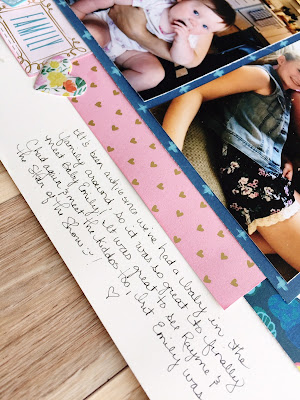 It's been awhile since we've had a baby in the
family around so it was so great to finally
meet Baby Emily! It was great to see Rayne &
Chad again & meet the kiddos too, but Emily was
the star of the show :) ♡